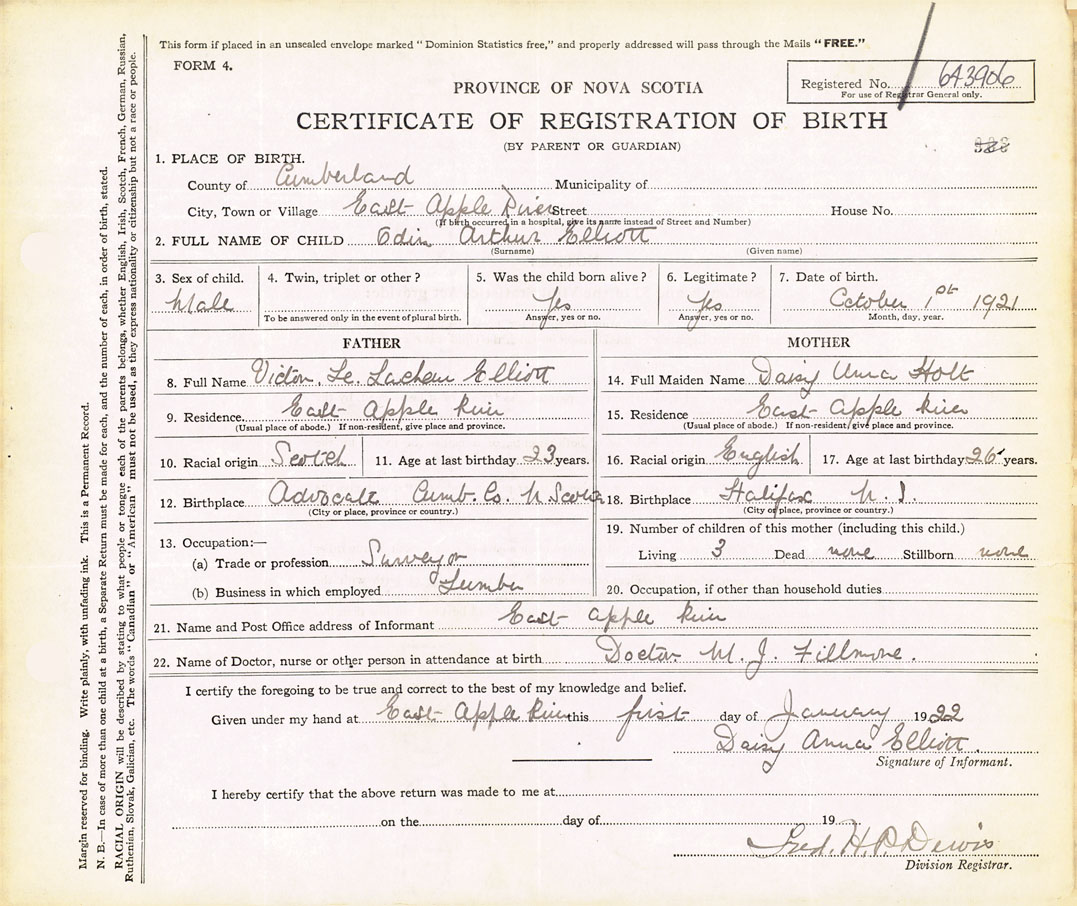 This form if placed in an unsealed envelope marked "Dominion Statistics free," and properly addressed will pass through the Mails "FREE."
FORM 4.
Registered No. 643906
For use of Registrar General only.
PROVINCE OF NOVA SCOTIA
CERTIFICATE OF REGISTRATION OF BIRTH
(BY PARENT OR GUARDIAN)
1. PLACE OF BIRTH.
County of Cumberland Municipality of
City, Town or Village East Apple River Street House No.
(If birth occurred in a hospital, give its name instead of Street and Number)
2. FULL NAME OF CHILD Odin Arthur Elliott
(Surname) (Given name)
3. Sex of child. 4. Twin, triplet or other? 5. Was the child born alive? 6. Legitimate? 7. Date of birth.
Male Yes Yes October 1st 1921
To be answered only in the event of plural birth. Answer, yes or no. Answer, yes or no. Month, day, year.
FATHER
8. Full Name Victor Le Elliott
9. Residence East Apple River
(Usual place of abode.) If non-resident, give place and province.
10. Racial origin Scotch 11. Age at last birthday 23 years.
12. Birthplace Advocate Cumb. Co. N. Scotia
(City or place, province or country.)
13. Occupation:—
(a) Trade or profession Surveyor
(b) Business in which employed Lumber
MOTHER
14. Full Maiden Name Daisy Anna Holt
15. Residence East Apple River
(Usual place of abode.) If non-resident, give place and province.
16. Racial origin English 17. Age at last birthday 26 years.
18. Birthplace Halifax N. S.
(City or place, province or country.)
19. Number of children of this mother (including this child.)
Living 3 Dead none Stillborn none
20. Occupation, if other than household duties
21. Name and Post Office address of Informant East Apple River
22. Name of Doctor, nurse or other person in attendance at birth Doctor M. J. Fillmore.
I certify the foregoing to be true and correct to the best of my knowledge and belief.
Given under my hand at East Apple River this first day of January 1922
Daisy Anna Elliott.
Signature of Informant.
I hereby certify that the above return was made to me at
on the day of 19
Fred. H. P. Dewis
Division Registrar.
Margin reserved for binding. Write plainly, with unfading ink. This is a Permanent Record.
N. B.—In case of more than one child at a birth, a Separate Return must be made for each, and the number of each, in order of birth, stated.
RACIAL ORIGIN will be described by stating to what people or tongue each of the parents belongs, whether English, Irish, Scotch, French, German, Russian,
Ruthenian, Slovak, Galician, etc. The words "Canadian" or "American" must not be used, as they express nationality or citizenship but not a race or people.